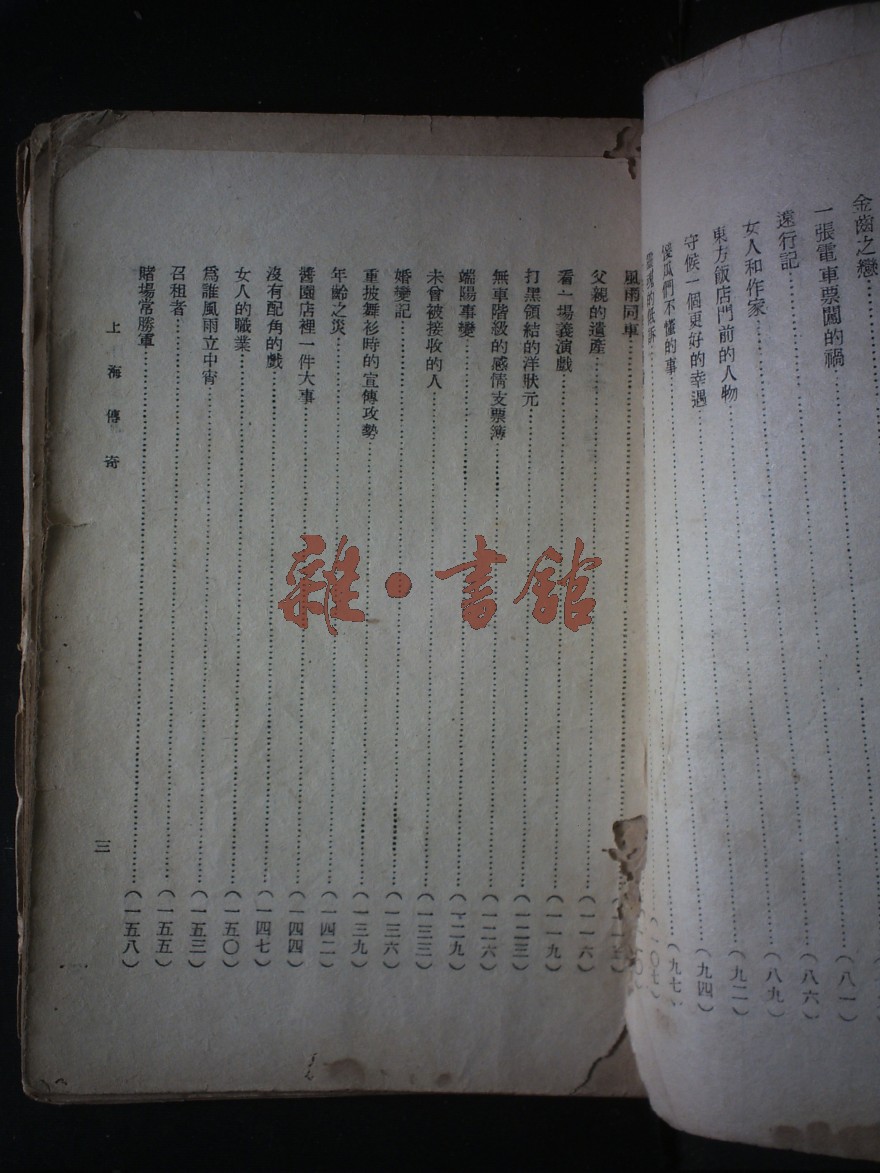 金齒之戀
一張電車票闖的禍……(八一)
遠行記……(八六)
女人和作家……(八九)
東方飯店門前的人物……(九二)
守候一個更好的幸遇……(九四)
傻瓜們不懂的事……(九七)
的低訴……(一〇七)
風雨同車
父親的遺產……(一一六)
看一場義演戲……(一一九)
打黑領結的洋狀元……(一二三)
無車階級的感情支票簿……(一二六)
端陽事變……(一二九)
未曾被接收的人……(一三三)
婚變記……(一三六)
重披舞衫時的宣傳攻勢……(一三九)
年齡之災……(一四二)
醬園店裡一件大事……(一四四)
沒有配角的戲……(一四七)
女人的職業……(一五〇)
爲誰風雨立中宵……(一五三)
召租者……(一五五)
賭場常勝軍……(一五八)
上海傳奇
三
雜·書館